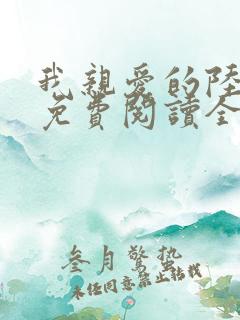 我親愛的陸
免費閱讀全
叁月驚蟄
未经同意禁止转载